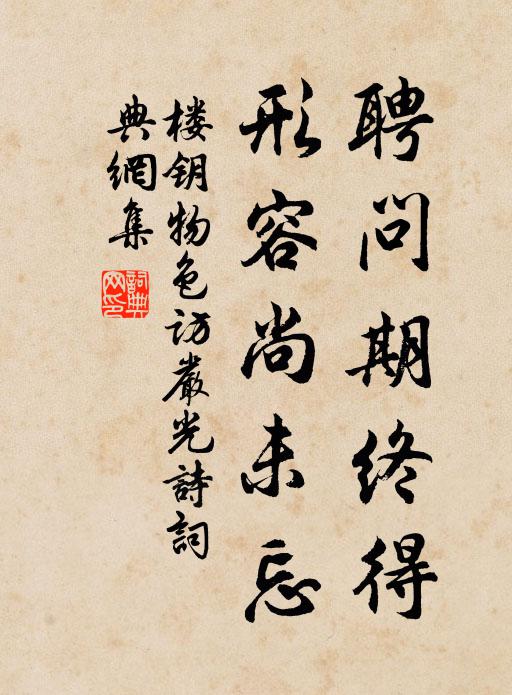 聘问期终得
形容尚未忘
楼钥物色访嚴光詩詞
典網集
詞典网印